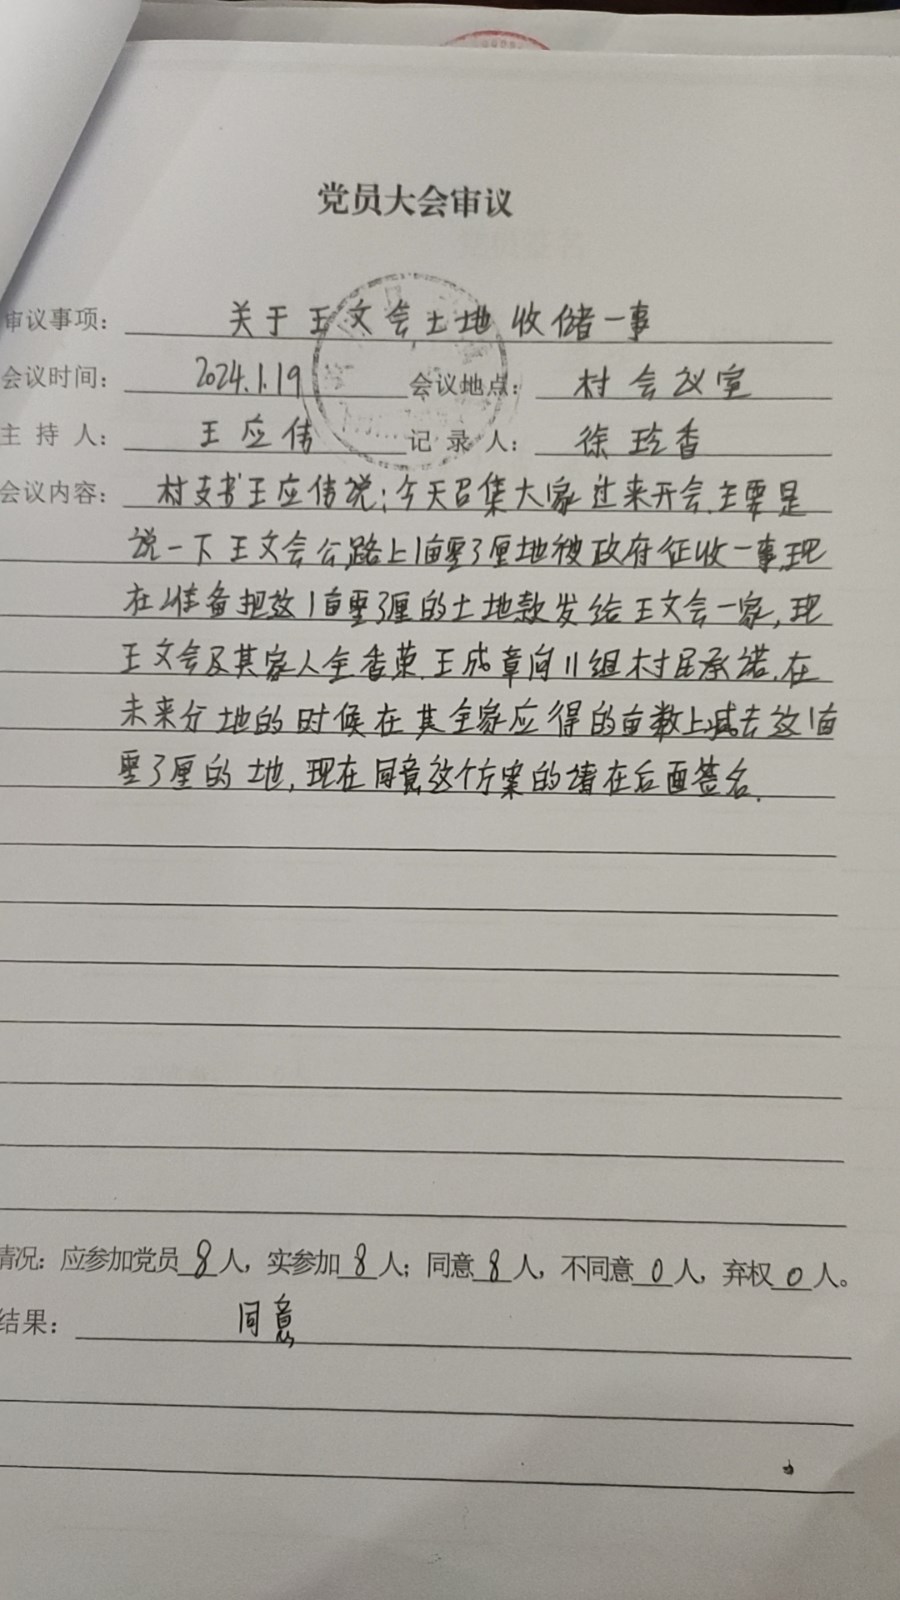 党员大会审议
审议事项: 关于王文会土地收储一事
会议时间: 2024.1.19 会议地点: 村会议室
主持人: 王应伟 记录人: 徐玲香
会议内容: 村支书王应伟说:今天召集大家过来开会.主要是
说一下王文会公路上1亩零3厘地被政府征收一事,现
在准备把这1亩零3厘的土地款发给王文会一家,现
王文会及其家人全香荣.王成章向11组村民承诺.在
未来分地的时候在其全家应得的亩数上减去这1亩
零3厘的地,现在同意这个方案的请在后面签名.
情况: 应参加党员8人, 实参加8人; 同意8人, 不同意0人, 弃权0人。
结果: 同意